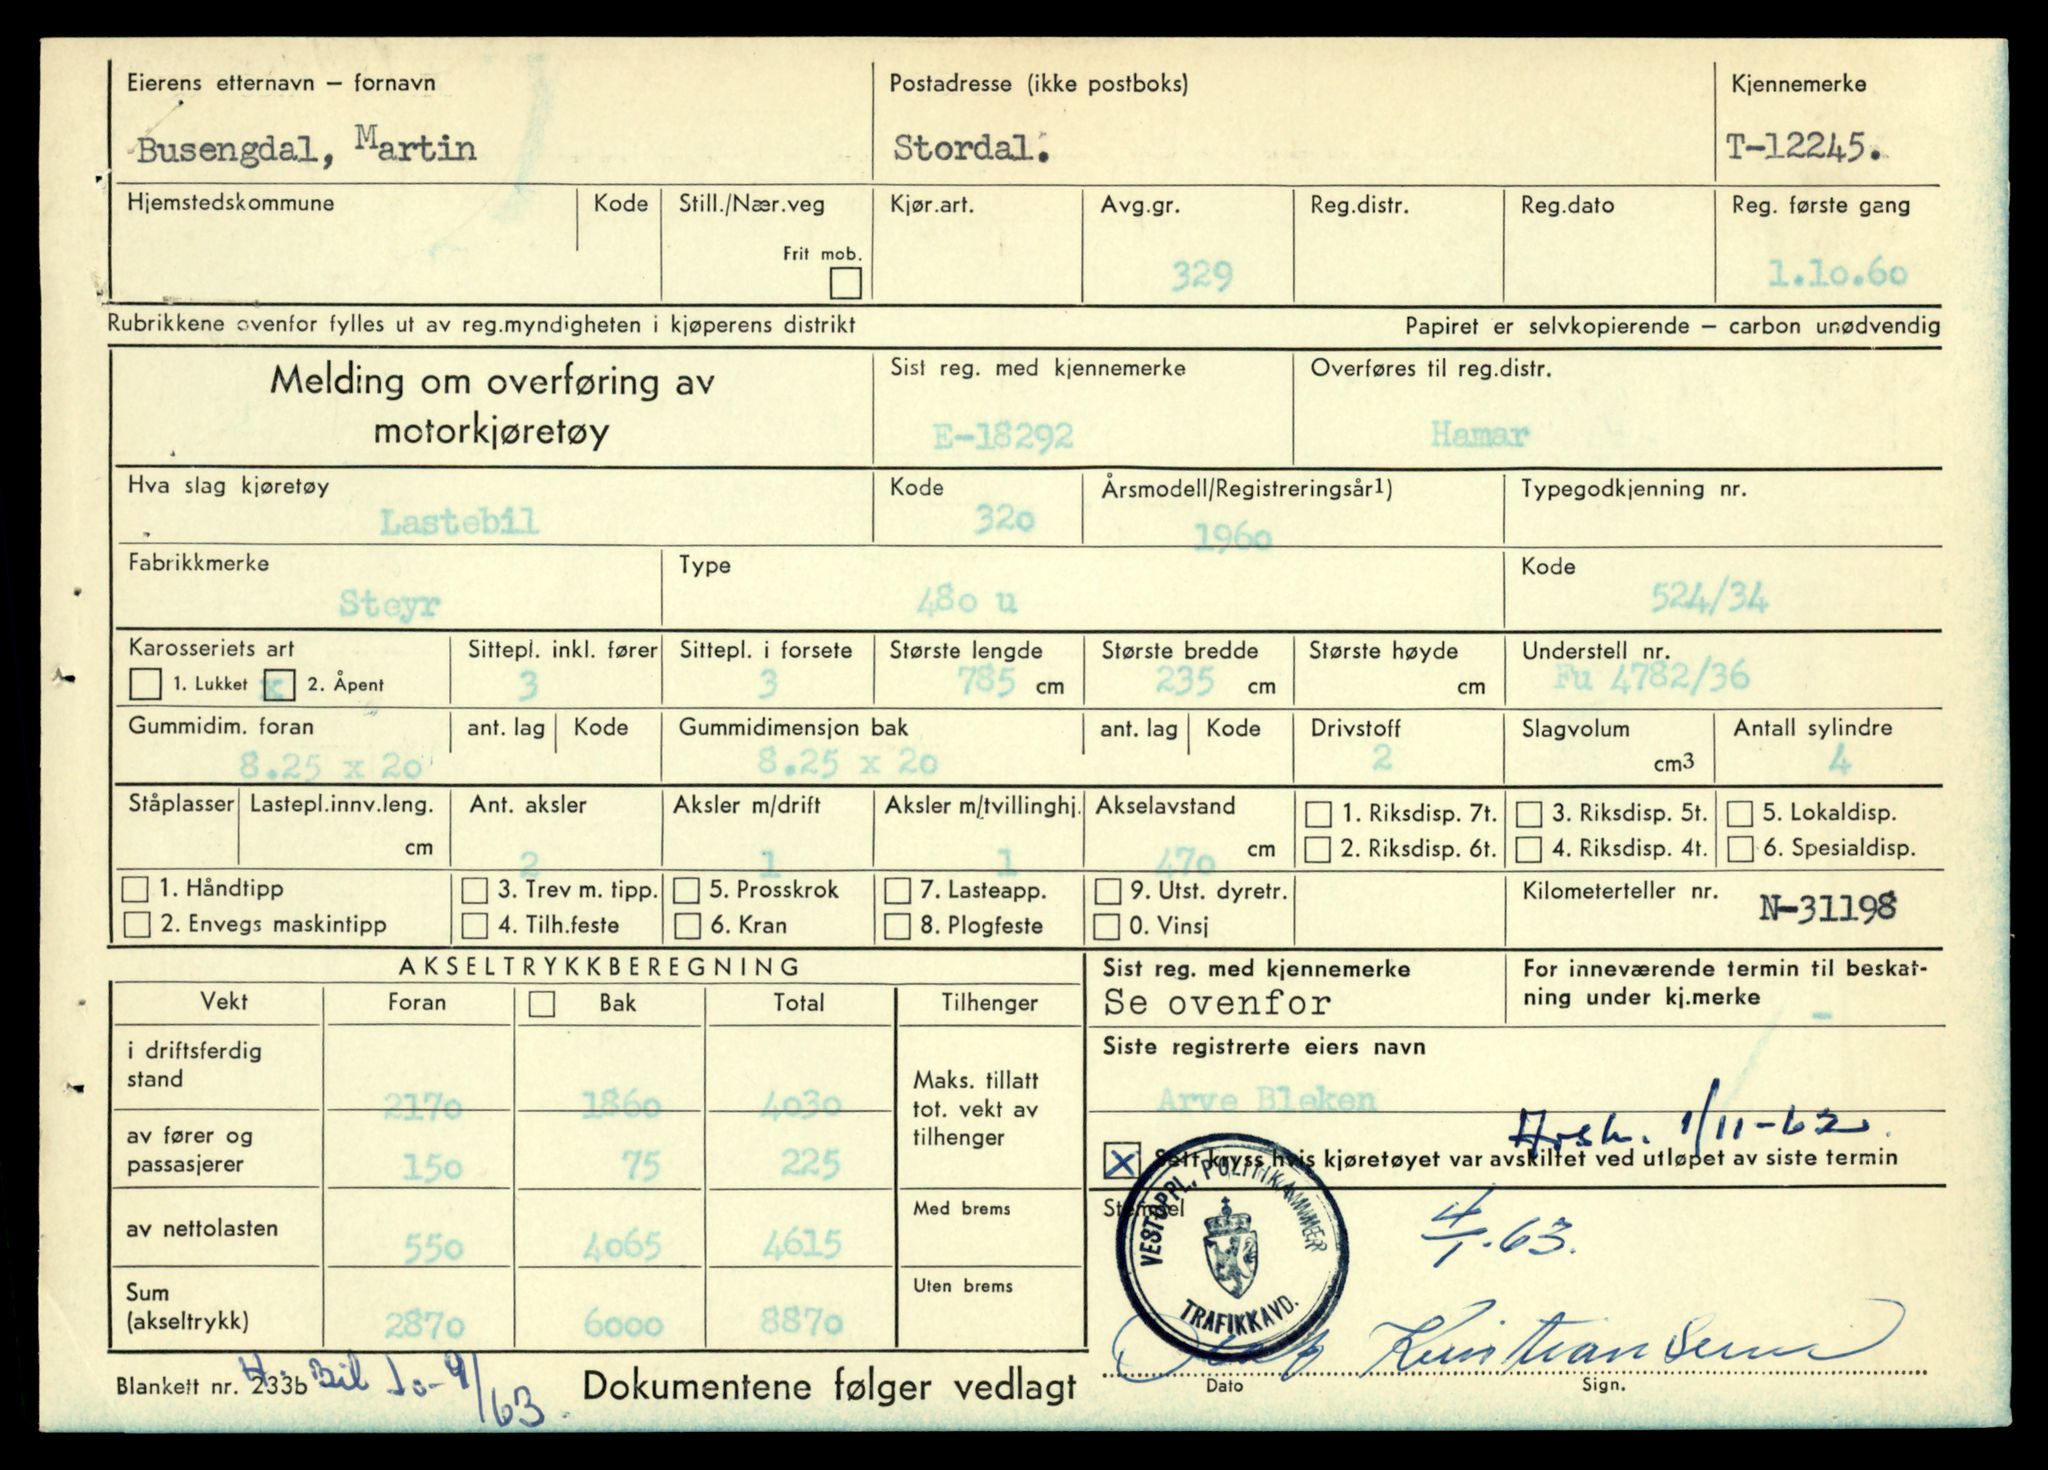 Eierens etternavn – fornavn Postadresse (ikke postboks) Kjennemerke
Busengdal, Martin Stordal. T-12245.
Hjemstedskommune Kode Still./Nær.veg Kjør.art. Avg.gr. Reg.distr. Reg.dato Reg. første gang
Frit mob. 329 1.10.60
Rubrikkene ovenfor fylles ut av reg.myndigheten i kjøperens distrikt Papiret er selvkopierende – carbon unødvendig
Melding om overføring av Sist reg. med kjennemerke Overføres til reg.distr.
motorkjøretøy E-18292 Hamar
Hva slag kjøretøy Kode Årsmodell/Registreringsår1) Typegodkjenning nr.
Lastebil 320 1960
Fabrikkmerke Type Kode
Steyr 480 u 524/34
Karosseriets art Sittepl. inkl. fører Sittepl. i forsete Største lengde Største bredde Største høyde Understell nr.
1. Lukket x 2. Åpent 3 3 785 cm 235 cm cm Fu 4782/36
Gummidim. foran ant. lag Kode Gummidimensjon bak ant. lag Kode Drivstoff Slagvolum Antall sylindre
8.25 x 20 8.25 x 20 2 cm3 4
Ståplasser Lastepl.innv.leng. Ant. aksler Aksler m/drift Aksler m/tvillinghj. Akselavstand 1. Riksdisp. 7t. 3. Riksdisp. 5t. 5. Lokaldisp.
cm 2 1 1 470 cm 2. Riksdisp. 6t. 4. Riksdisp. 4t. 6. Spesialdisp.
1. Håndtipp 3. Trev m. tipp. 5. Prosskrok 7. Lasteapp. 9. Utst. dyretr. Kilometerteller nr.
2. Envegs maskintipp 4. Tilh.feste 6. Kran 8. Plogfeste 0. Vinsj N-31198
AKSELTRYKKBEREGNING Sist reg. med kjennemerke For inneværende termin til beskat-
Vekt Foran Bak Total Tilhenger Se ovenfor ning under kj.merke -
i driftsferdig Siste registrerte eiers navn
stand 2170 1860 4030 Maks. tillatt Arve Bleken
av fører og tot. vekt av
passasjerer 150 75 225 tilhenger
1/11-62
X Sett kryss hvis kjøretøyet var avskiltet ved utløpet av siste termin
av nettolasten 550 4065 4615 Med brems Stempel
4/1.63.
VESTOPPL. POLITIKAMMER
TRAFIKKAVD.
Sum Uten brems
(akseltrykk) 2870 6000 8870
Kristiansen
Dato Sign.
Blankett nr. 233b Bil 10-9/63 Dokumentene følger vedlagt